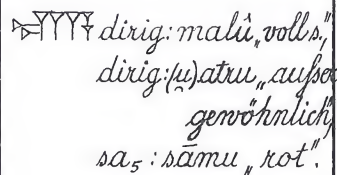 𒋛𒀀 dirig: malû „voll s.",
dirig: (u̯)atru „auße
gewöhnlich",
sa₅ : sāmu „rot".